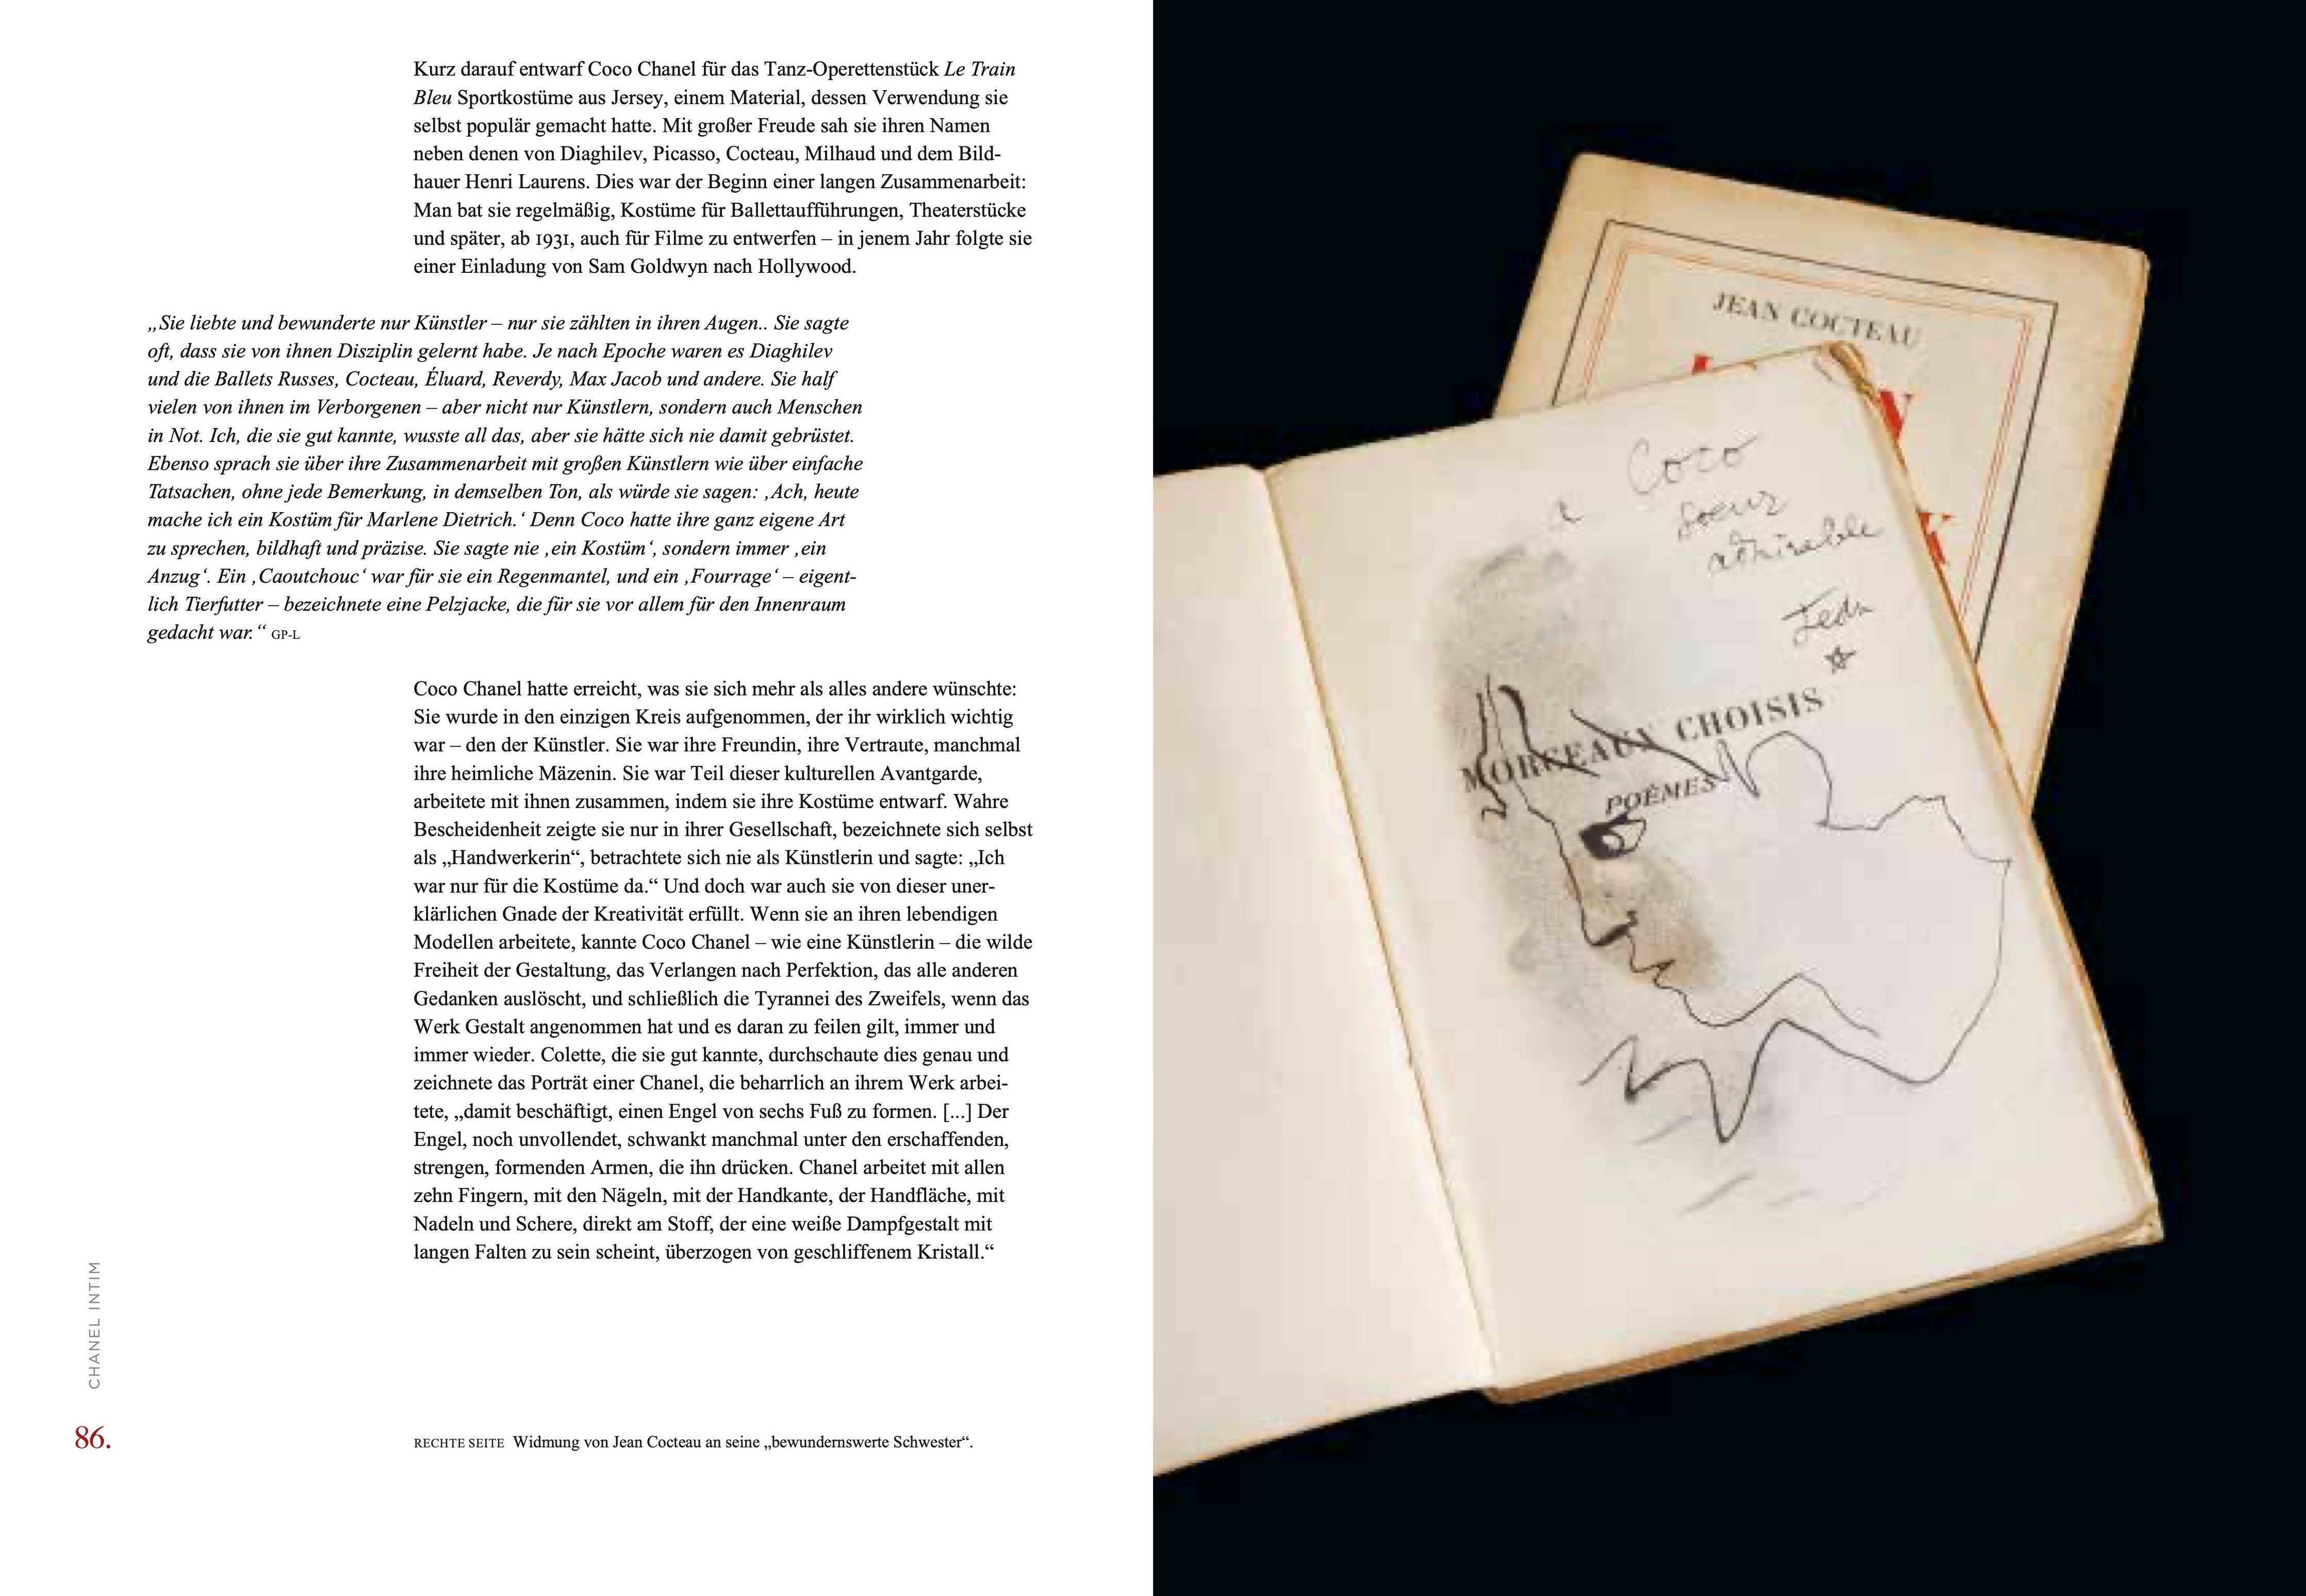 Kurz darauf entwarf Coco Chanel für das Tanz-Operettenstück Le Train
Bleu Sportkostüme aus Jersey, einem Material, dessen Verwendung sie
selbst populär gemacht hatte. Mit großer Freude sah sie ihren Namen
neben denen von Diaghilev, Picasso, Cocteau, Milhaud und dem Bild-
hauer Henri Laurens. Dies war der Beginn einer langen Zusammenarbeit:
Man bat sie regelmäßig, Kostüme für Ballettaufführungen, Theaterstücke
und später, ab 1931, auch für Filme zu entwerfen – in jenem Jahr folgte sie
einer Einladung von Sam Goldwyn nach Hollywood.
„Sie liebte und bewunderte nur Künstler – nur sie zählten in ihren Augen.. Sie sagte
oft, dass sie von ihnen Disziplin gelernt habe. Je nach Epoche waren es Diaghilev
und die Ballets Russes, Cocteau, Éluard, Reverdy, Max Jacob und andere. Sie half
vielen von ihnen im Verborgenen – aber nicht nur Künstlern, sondern auch Menschen
in Not. Ich, die sie gut kannte, wusste all das, aber sie hätte sich nie damit gebrüstet.
Ebenso sprach sie über ihre Zusammenarbeit mit großen Künstlern wie über einfache
Tatsachen, ohne jede Bemerkung, in demselben Ton, als würde sie sagen: ‚Ach, heute
mache ich ein Kostüm für Marlene Dietrich.‘ Denn Coco hatte ihre ganz eigene Art
zu sprechen, bildhaft und präzise. Sie sagte nie ‚ein Kostüm‘, sondern immer ‚ein
Anzug‘. Ein ‚Caoutchouc‘ war für sie ein Regenmantel, und ein ‚Fourrage‘ – eigent-
lich Tierfutter – bezeichnete eine Pelzjacke, die für sie vor allem für den Innenraum
gedacht war.“ GP-L
Coco Chanel hatte erreicht, was sie sich mehr als alles andere wünschte:
Sie wurde in den einzigen Kreis aufgenommen, der ihr wirklich wichtig
war – den der Künstler. Sie war ihre Freundin, ihre Vertraute, manchmal
ihre heimliche Mäzenin. Sie war Teil dieser kulturellen Avantgarde,
arbeitete mit ihnen zusammen, indem sie ihre Kostüme entwarf. Wahre
Bescheidenheit zeigte sie nur in ihrer Gesellschaft, bezeichnete sich selbst
als „Handwerkerin“, betrachtete sich nie als Künstlerin und sagte: „Ich
war nur für die Kostüme da.“ Und doch war auch sie von dieser uner-
klärlichen Gnade der Kreativität erfüllt. Wenn sie an ihren lebendigen
Modellen arbeitete, kannte Coco Chanel – wie eine Künstlerin – die wilde
Freiheit der Gestaltung, das Verlangen nach Perfektion, das alle anderen
Gedanken auslöscht, und schließlich die Tyrannei des Zweifels, wenn das
Werk Gestalt angenommen hat und es daran zu feilen gilt, immer und
immer wieder. Colette, die sie gut kannte, durchschaute dies genau und
zeichnete das Porträt einer Chanel, die beharrlich an ihrem Werk arbei-
tete, „damit beschäftigt, einen Engel von sechs Fuß zu formen. [...] Der
Engel, noch unvollendet, schwankt manchmal unter den erschaffenden,
strengen, formenden Armen, die ihn drücken. Chanel arbeitet mit allen
zehn Fingern, mit den Nägeln, mit der Handkante, der Handfläche, mit
Nadeln und Schere, direkt am Stoff, der eine weiße Dampfgestalt mit
langen Falten zu sein scheint, überzogen von geschliffenem Kristall.“
CHANEL INTIM
86.
RECHTE SEITE Widmung von Jean Cocteau an seine „bewundernswerte Schwester“.
JEAN COCTEAU
a Coco
soeur
admirable
Jean
MORCEAUX CHOISIS
POÈMES